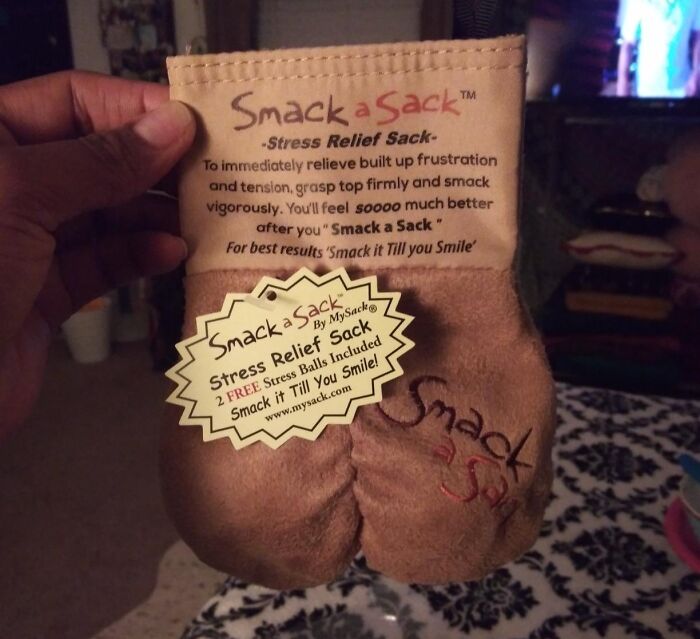 Smack a Sack™
-Stress Relief Sack-
To immediately relieve built up frustration
and tension, grasp top firmly and smack
vigorously. You'll feel soooo much better
after you "Smack a Sack"
For best results 'Smack it Till you Smile'
Smack a Sack™
By MySack®
Stress Relief Sack
2 FREE Stress Balls Included
Smack it Till You Smile!
www.mysack.com
Smack
a